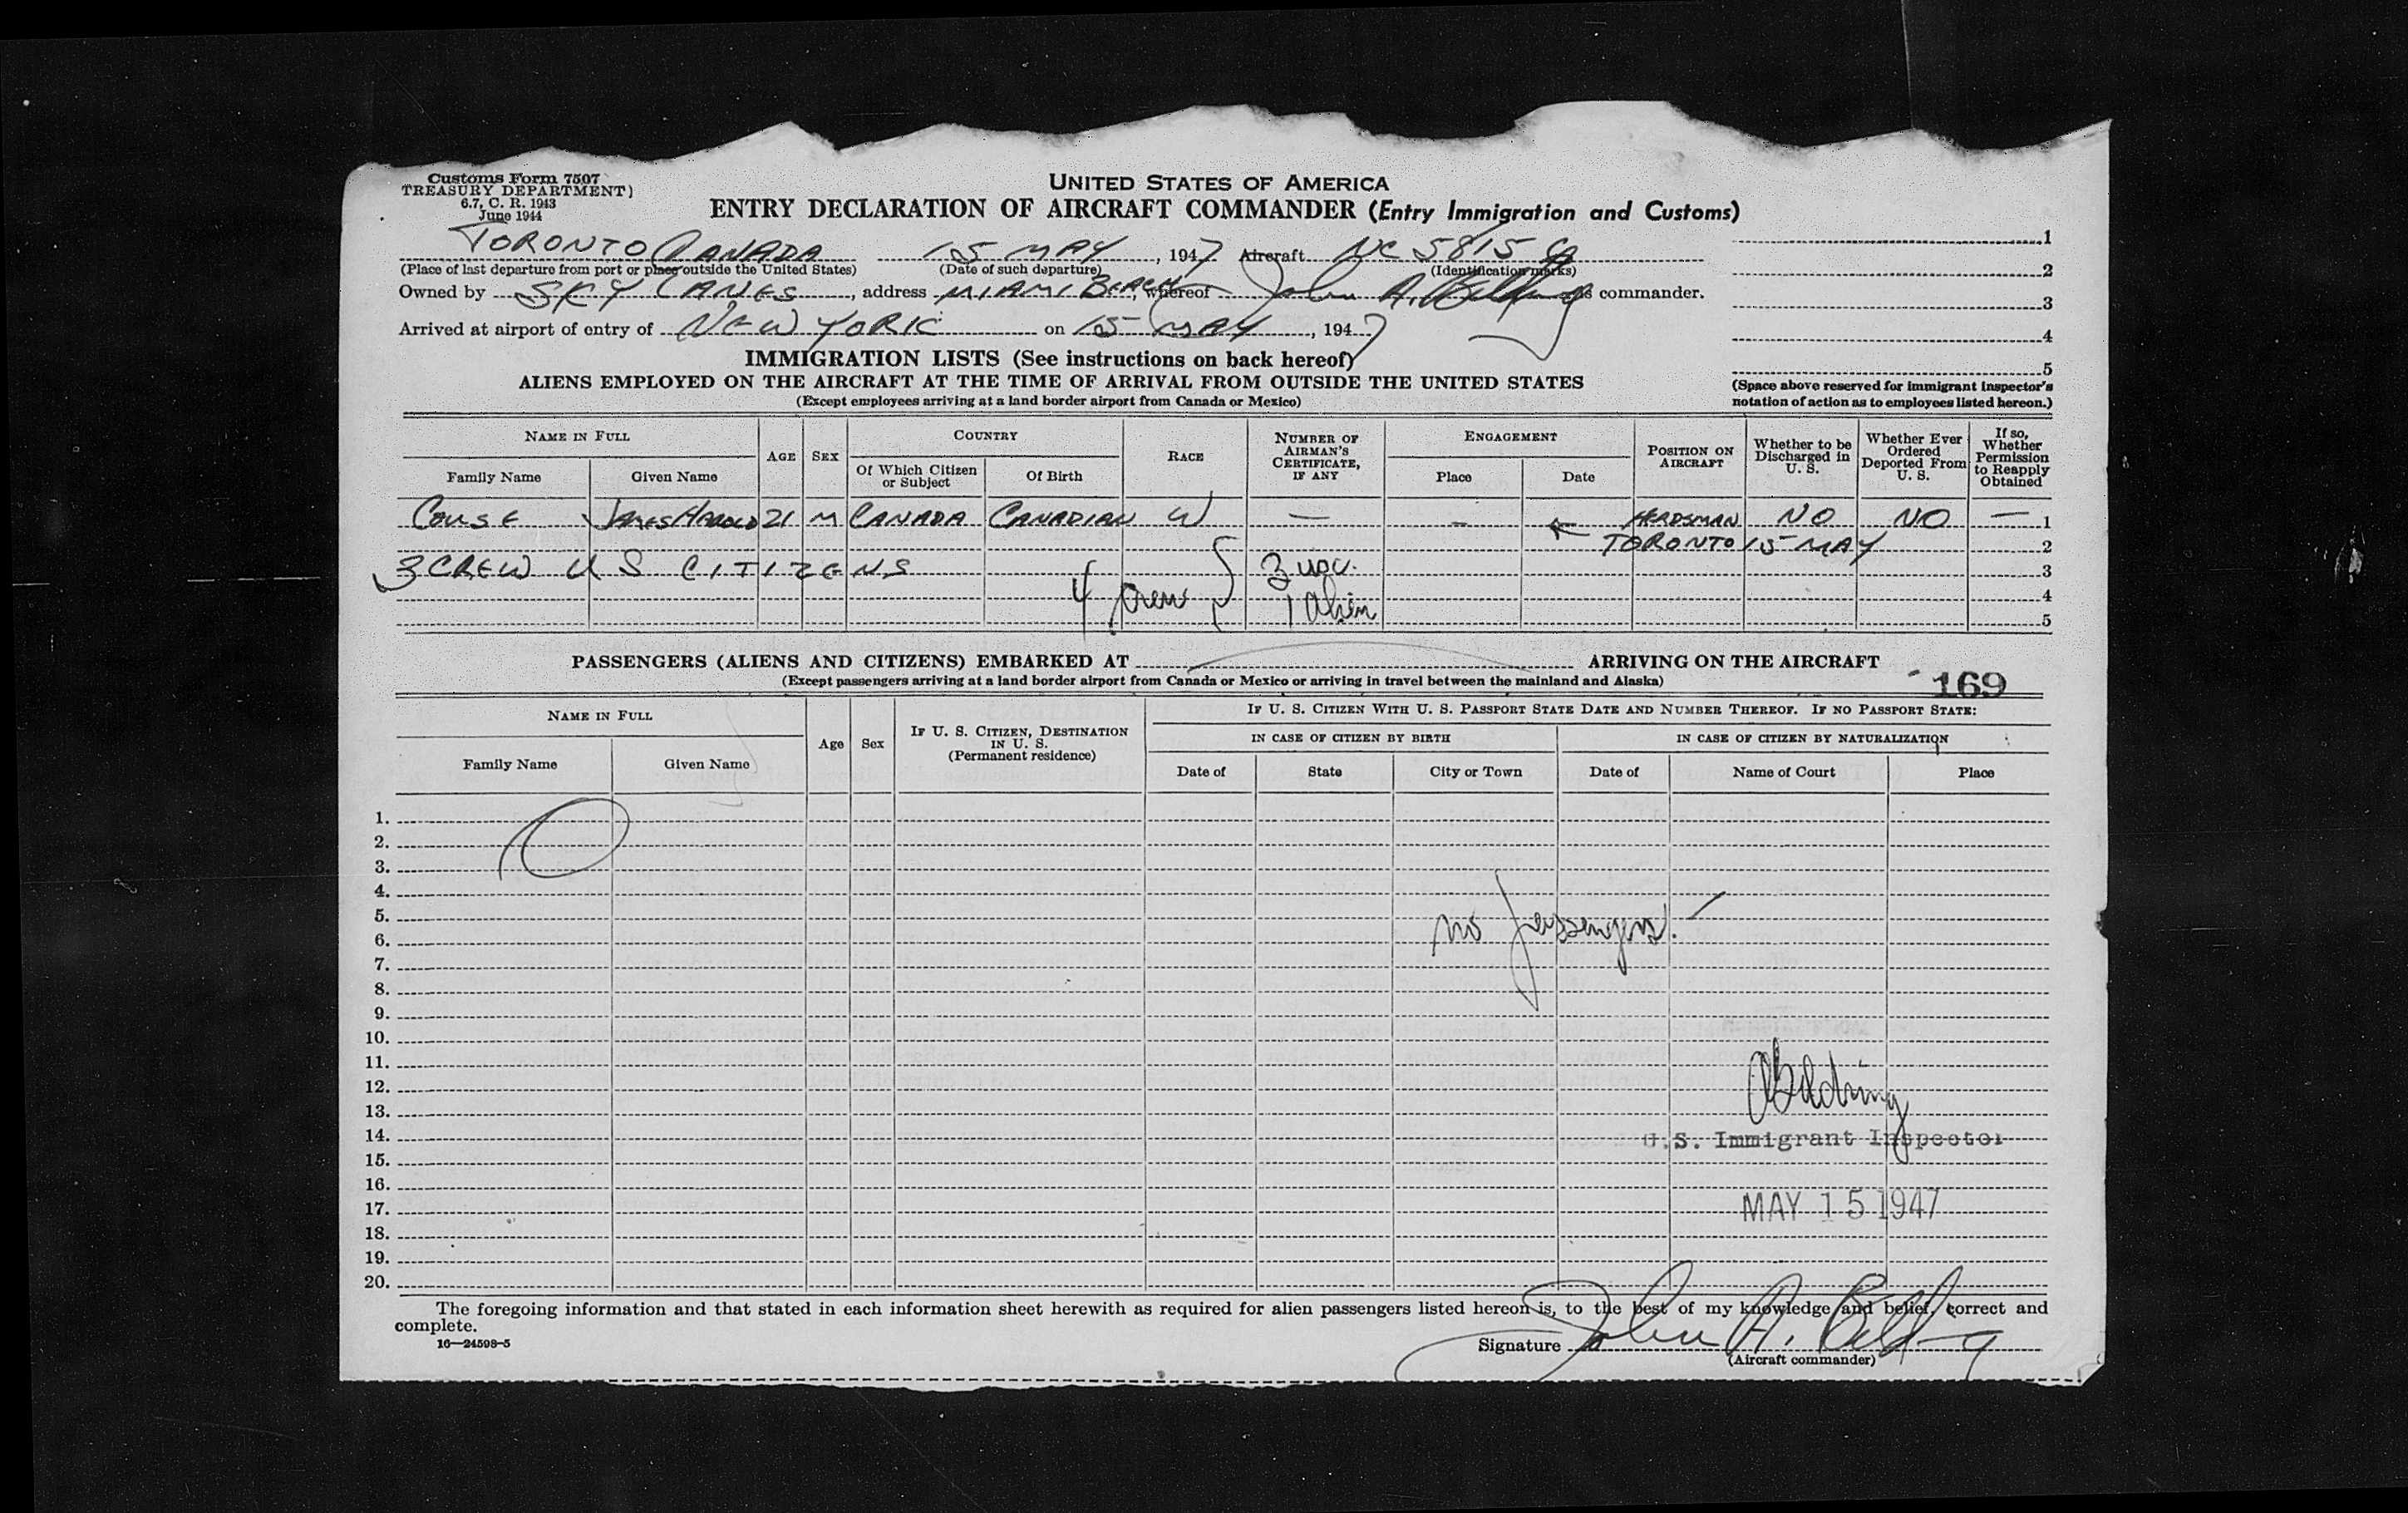 Customs Form 7507
TREASURY DEPARTMENT)
6.7, C. R. 1943
June 1944
UNITED STATES OF AMERICA
ENTRY DECLARATION OF AIRCRAFT COMMANDER (Entry Immigration and Customs)
TORONTO CANADA 15 MAY, 1947 Aircraft NC 5815
(Place of last departure from port or place outside the United States) (Date of such departure) (Identification marks)
Owned by SKY LANES, address MIAMI BEACH, whereof John A. is commander.
Arrived at airport of entry of NEW YORK on 15 MAY, 1947
1
2
3
4
5
(Space above reserved for immigrant inspector's notation of action as to employees listed hereon.)
IMMIGRATION LISTS (See instructions on back hereof)
ALIENS EMPLOYED ON THE AIRCRAFT AT THE TIME OF ARRIVAL FROM OUTSIDE THE UNITED STATES
(Except employees arriving at a land border airport from Canada or Mexico)
NAME IN FULL AGE SEX COUNTRY RACE NUMBER OF AIRMAN'S CERTIFICATE, IF ANY ENGAGEMENT POSITION ON AIRCRAFT Whether to be Discharged in U. S. Whether Ever Ordered Deported From U. S. If so, Whether Permission to Reapply Obtained
Family Name Given Name Of Which Citizen or Subject Of Birth Place Date
COUSE JAMES HAROLD 21 M CANADA CANADIAN W — – HERDSMAN NO NO — 1
TORONTO 15 MAY 2
3 CREW U S CITIZENS 3 usc. 3
4 crew 1 alien 4
5
PASSENGERS (ALIENS AND CITIZENS) EMBARKED AT ARRIVING ON THE AIRCRAFT
(Except passengers arriving at a land border airport from Canada or Mexico or arriving in travel between the mainland and Alaska)
169
NAME IN FULL Age Sex IF U. S. CITIZEN, DESTINATION IN U. S. (Permanent residence) IF U. S. CITIZEN WITH U. S. PASSPORT STATE DATE AND NUMBER THEREOF. IF NO PASSPORT STATE:
IN CASE OF CITIZEN BY BIRTH IN CASE OF CITIZEN BY NATURALIZATION
Family Name Given Name Date of State City or Town Date of Name of Court Place
1.
2.
3.
4.
5.
6. no passengers.
7.
8.
9.
10.
11.
12.
13.
14. U.S. Immigrant Inspector
15.
16.
17. MAY 15 1947
18.
19.
20.
The foregoing information and that stated in each information sheet herewith as required for alien passengers listed hereon is, to the best of my knowledge and belief, correct and
complete.
16—24598-5
Signature John A.
(Aircraft commander)